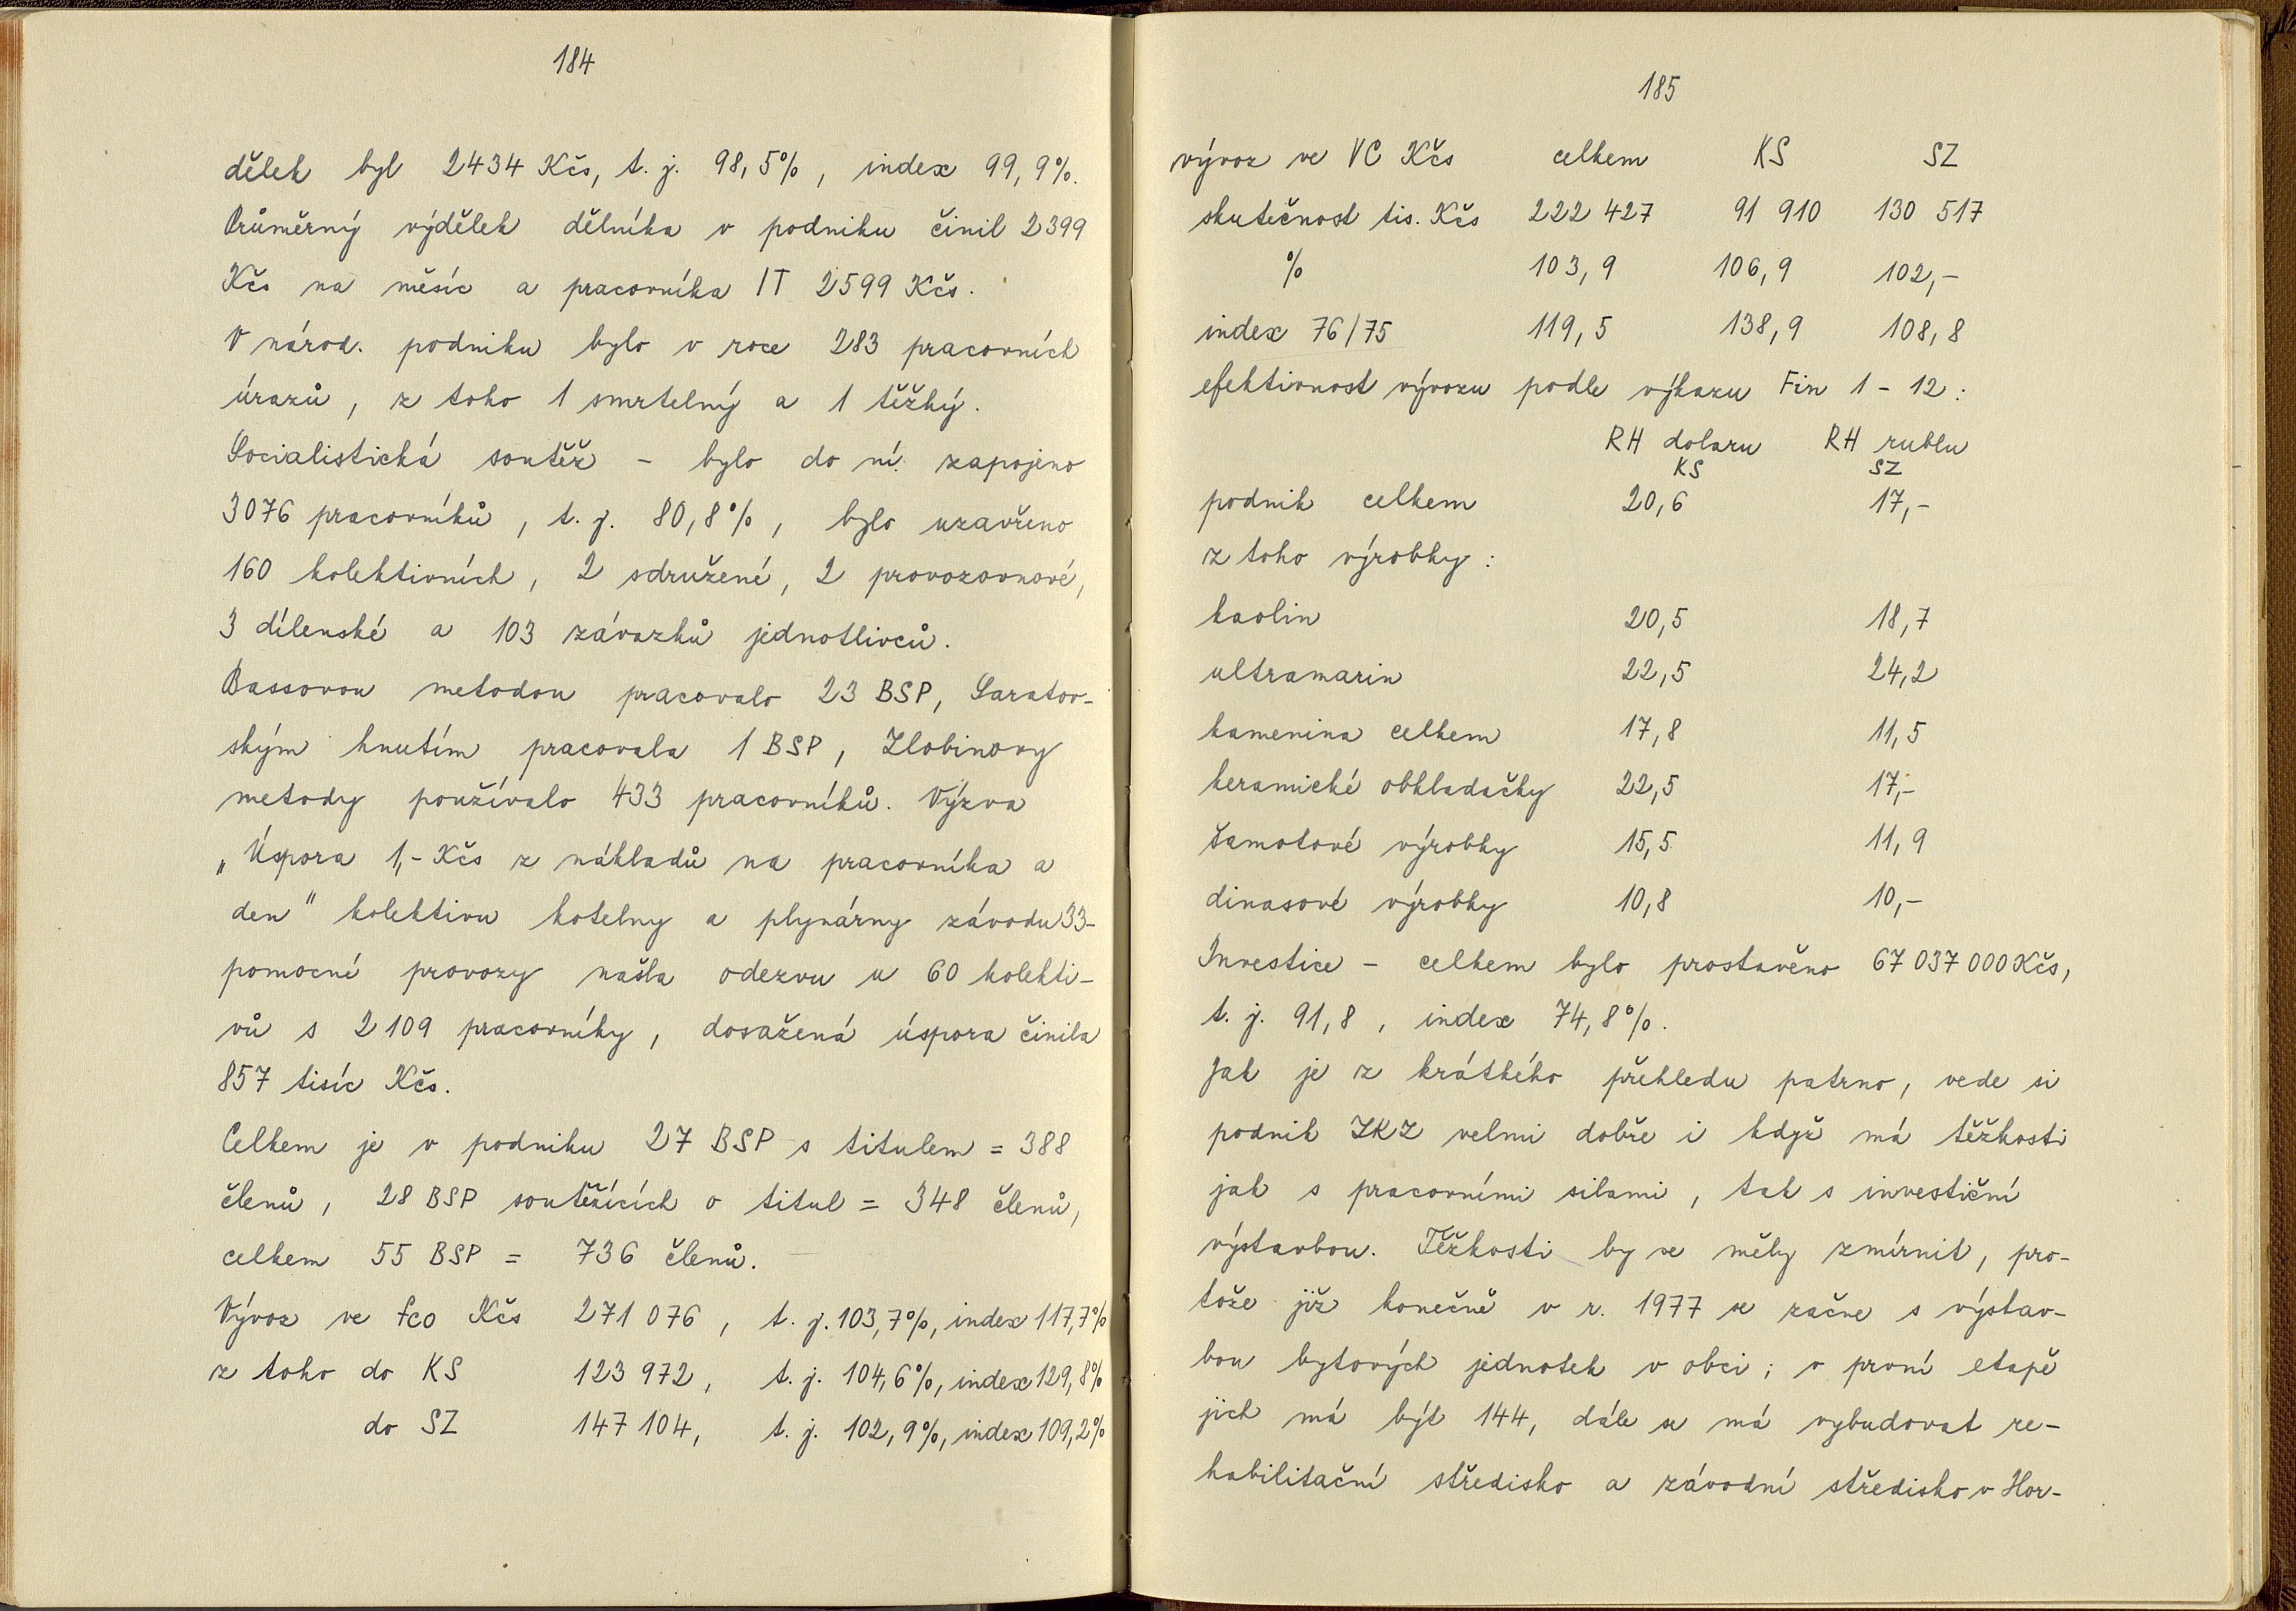 184
dělek byl 2434 Kčs, t. j. 98,5%, index 99,9%.
Průměrný výdělek dělníka v podniku činil 2399
Kčs na měsíc a pracovníka IT 2599 Kčs.
V národ. podniku bylo v roce 283 pracovních
úrazů, z toho 1 smrtelný a 1 těžký.
Socialistická soutěž - bylo do ní zapojeno
3076 pracovníků, t. j. 80,8%, bylo uzavřeno
160 kolektivních, 2 sdružené, 2 provozovnové,
3 dílenské a 103 závazků jednotlivců.
Bassovou metodou pracovalo 23 BSP, Saratov-
ským hnutím pracovala 1 BSP, Zlobinovy
metody používalo 433 pracovníků. Výzva
„Úspora 1,- Kčs z nákladů na pracovníka a
den" kolektivu kotelny a plynárny závodu 33-
pomocné provozy našla odezvu u 60 kolekti-
vů s 2109 pracovníky, dosažená úspora činila
857 tisíc Kčs.
Celkem je v podniku 27 BSP s titulem = 388
členů, 28 BSP soutěžících o titul = 348 členů,
celkem 55 BSP = 736 členů.
Vývoz ve fco Kčs 271 076, t. j. 103,7%, index 117,7%
z toho do KS 123 972, t. j. 104,6%, index 129,8%
do SZ 147 104, t. j. 102,9%, index 109,2%
185
vývoz ve VC Kčs celkem KS SZ
skutečnost tis. Kčs 222 427 91 910 130 517
% 103,9 106,9 102,-
index 76/75 119,5 138,9 108,8
efektivnost vývozu podle výkazu Fin 1 - 12:
RH dolaru RH rublu
KS SZ
podnik celkem 20,6 17,-
z toho výrobky:
kaolin 20,5 18,7
ultramarin 22,5 24,2
kamenina celkem 17,8 11,5
keramické obkladačky 22,5 17,-
šamotové výrobky 15,5 11,9
dinasové výrobky 10,8 10,-
Investice - celkem bylo prostavěno 67 037 000 Kčs,
t. j. 91,8, index 74,8%.
Jak je z krátkého přehledu patrno, vede si
podnik ZKZ velmi dobře i když má těžkosti
jak s pracovními silami, tak s investiční
výstavbou. Těžkosti by se měly zmírnit, pro-
tože již konečně v r. 1977 se začne s výstav-
bou bytových jednotek v obci; v první etapě
jich má být 144, dále se má vybudovat re-
habilitační středisko a závodní středisko v Hor-